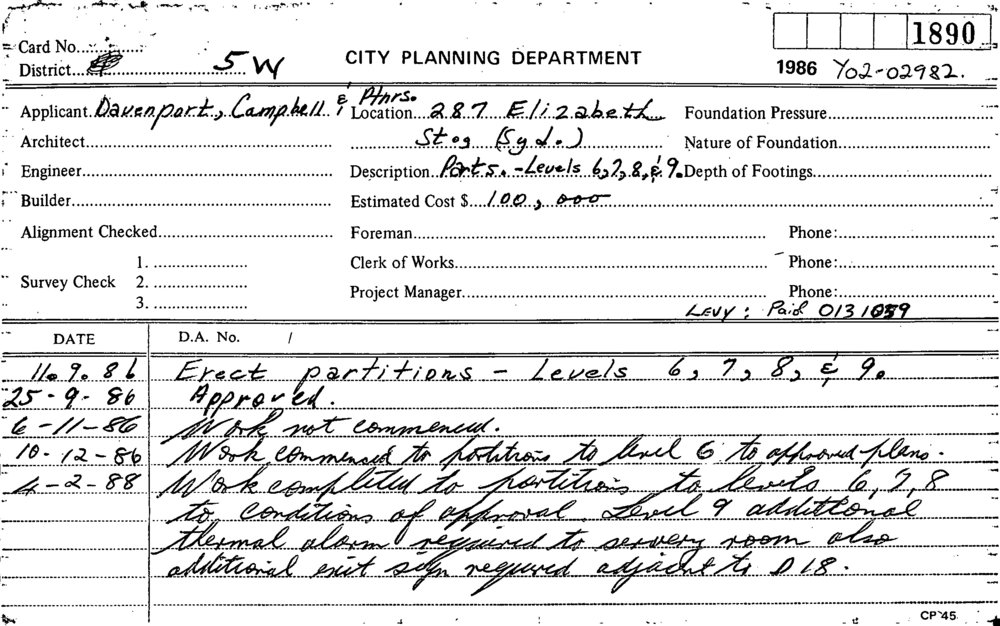 1890
Card No.
District 5W
CITY PLANNING DEPARTMENT
1986 Y02-02982.
Applicant Davenport, Campbell & Ptnrs.
Location 287 Elizabeth
Foundation Pressure
Architect
St., (Syd.)
Nature of Foundation
Engineer
Description Parts. - Levels 6,7,8, & 9.
Depth of Footings
Builder
Estimated Cost $ 100,000
Alignment Checked
Foreman
Phone:
1.
Clerk of Works
Phone:
Survey Check 2.
Project Manager
Phone:
3.
LEVY: Paid 0131059
DATE D.A. No. /
11.9.86 Erect partitions - Levels 6, 7, 8, & 9.
25-9-86 Approved.
6-11-86 Work not commenced.
10-12-86 Work commenced to partitions to level 6 to approved plans.
4-2-88 Work completed to partitions to levels 6, 7, 8
to conditions of approval Level 9 additional
thermal alarm required to servery room also
additional exit sign required adjacent to D18.
CP 45